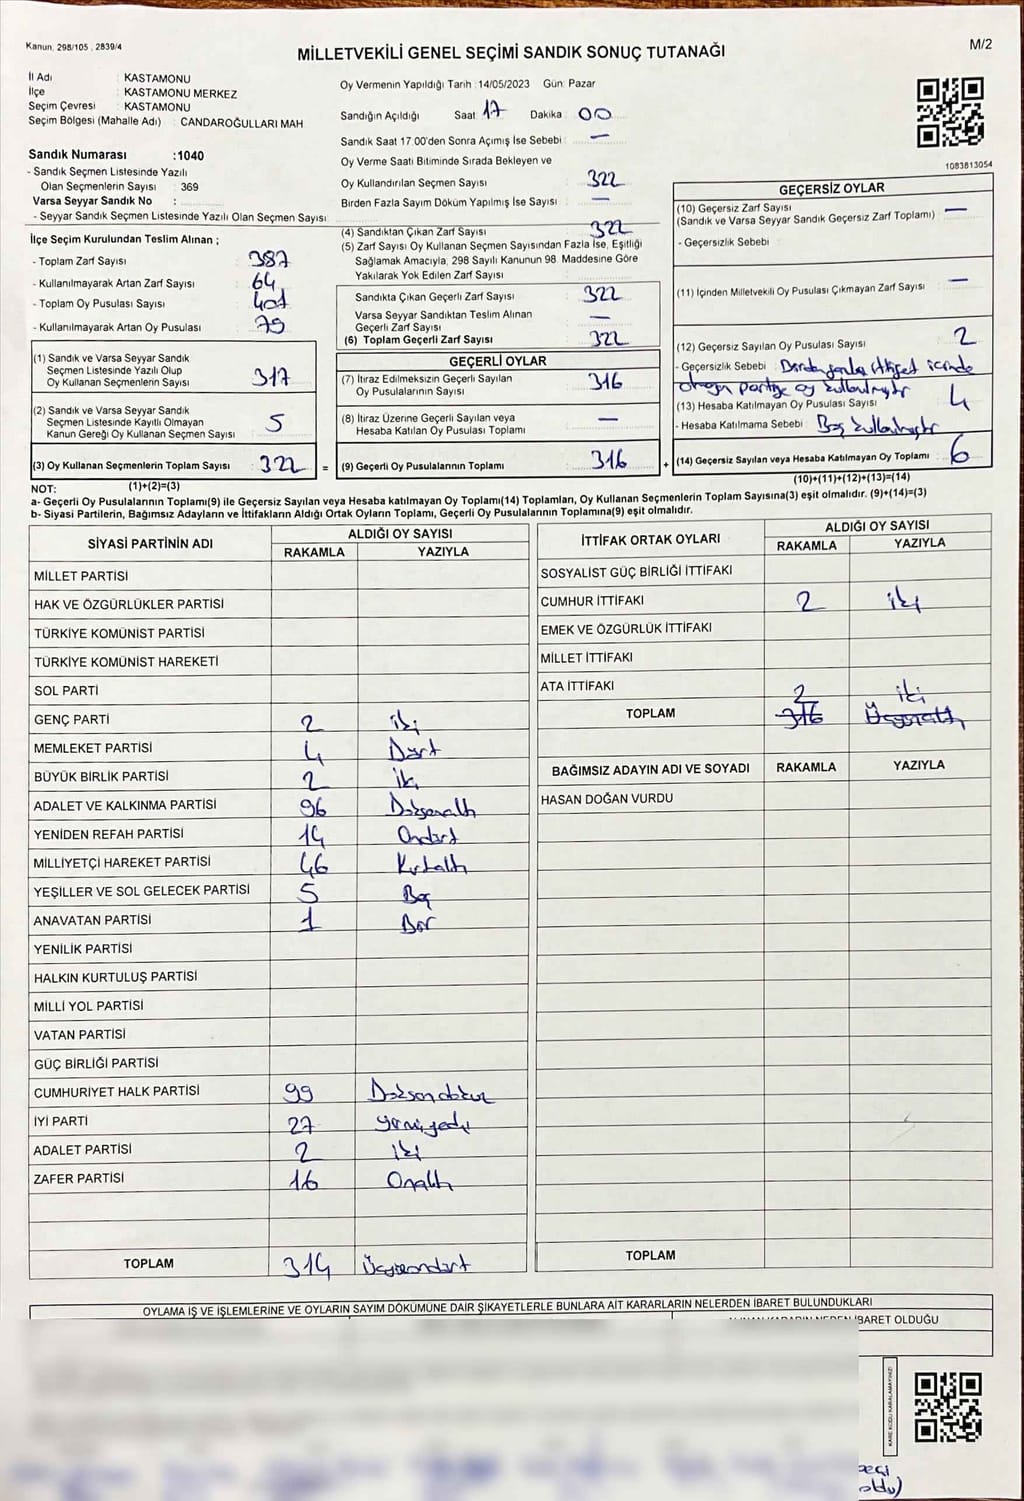 Kanun, 298/105 , 2839/4
MİLLETVEKİLİ GENEL SEÇİMİ SANDIK SONUÇ TUTANAĞI
M/2
İl Adı : KASTAMONU
İlçe : KASTAMONU MERKEZ
Seçim Çevresi : KASTAMONU
Seçim Bölgesi (Mahalle Adı) : CANDAROĞULLARI MAH
Sandık Numarası :1040
- Sandık Seçmen Listesinde Yazılı
Olan Seçmenlerin Sayısı : 369
Varsa Seyyar Sandık No :
- Seyyar Sandık Seçmen Listesinde Yazılı Olan Seçmen Sayısı:
Oy Vermenin Yapıldığı Tarih :14/05/2023 Gün: Pazar
Sandığın Açıldığı Saat : 17 Dakika : 00
Sandık Saat 17.00'den Sonra Açımış İse Sebebi : —
Oy Verme Saati Bitiminde Sırada Bekleyen ve
Oy Kullandırılan Seçmen Sayısı : 322
Birden Fazla Sayım Döküm Yapılmış İse Sayısı : —
1083813054
İlçe Seçim Kurulundan Teslim Alınan ;
- Toplam Zarf Sayısı : 387
- Kullanılmayarak Artan Zarf Sayısı : 64
- Toplam Oy Pusulası Sayısı : 401
- Kullanılmayarak Artan Oy Pusulası : 79
(1) Sandık ve Varsa Seyyar Sandık
Seçmen Listesinde Yazılı Olup
Oy Kullanan Seçmenlerin Sayısı : 317
(2) Sandık ve Varsa Seyyar Sandık
Seçmen Listesinde Kayıtlı Olmayan
Kanun Gereği Oy Kullanan Seçmen Sayısı : 5
(3) Oy Kullanan Seçmenlerin Toplam Sayısı : 322 =
(4) Sandıktan Çıkan Zarf Sayısı : 322
(5) Zarf Sayısı Oy Kullanan Seçmen Sayısından Fazla İse, Eşitliği
Sağlamak Amacıyla, 298 Sayılı Kanunun 98. Maddesine Göre
Yakılarak Yok Edilen Zarf Sayısı :
Sandıkta Çıkan Geçerli Zarf Sayısı : 322
Varsa Seyyar Sandıktan Teslim Alınan
Geçerli Zarf Sayısı : —
(6) Toplam Geçerli Zarf Sayısı : 322
GEÇERLİ OYLAR
(7) İtiraz Edilmeksizin Geçerli Sayılan
Oy Pusulalarının Sayısı : 316
(8) İtiraz Üzerine Geçerli Sayılan veya
Hesaba Katılan Oy Pusulası Toplamı : —
(9) Geçerli Oy Pusulalarının Toplamı : 316 +
GEÇERSİZ OYLAR
(10) Geçersiz Zarf Sayısı : —
(Sandık ve Varsa Seyyar Sandık Geçersiz Zarf Toplamı)
- Geçersizlik Sebebi :
(11) İçinden Milletvekili Oy Pusulası Çıkmayan Zarf Sayısı : —
(12) Geçersiz Sayılan Oy Pusulası Sayısı : 2
- Geçersizlik Sebebi : ittifak içinde
olmayan partiye oy kullanılmıştır
(13) Hesaba Katılmayan Oy Pusulası Sayısı : 4
- Hesaba Katılmama Sebebi : Boş kullanılmıştır
(14) Geçersiz Sayılan veya Hesaba Katılmayan Oy Toplamı : 6
NOT: (1)+(2)=(3)
(10)+(11)+(12)+(13)=(14)
a- Geçerli Oy Pusulalarının Toplamı(9) ile Geçersiz Sayılan veya Hesaba katılmayan Oy Toplamı(14) Toplamları, Oy Kullanan Seçmenlerin Toplam Sayısına(3) eşit olmalıdır. (9)+(14)=(3)
b- Siyasi Partilerin, Bağımsız Adayların ve İttifakların Aldığı Ortak Oyların Toplamı, Geçerli Oy Pusulalarının Toplamına(9) eşit olmalıdır.
SİYASİ PARTİNİN ADI ALDIĞI OY SAYISI
RAKAMLA YAZIYLA
MİLLET PARTİSİ
HAK VE ÖZGÜRLÜKLER PARTİSİ
TÜRKİYE KOMÜNİST PARTİSİ
TÜRKİYE KOMÜNİST HAREKETİ
SOL PARTİ
GENÇ PARTİ 2 iki
MEMLEKET PARTİSİ 4 Dört
BÜYÜK BİRLİK PARTİSİ 2 iki
ADALET VE KALKINMA PARTİSİ 96 Doksanaltı
YENİDEN REFAH PARTİSİ 14 Ondört
MİLLİYETÇİ HAREKET PARTİSİ 46 Kırkaltı
YEŞİLLER VE SOL GELECEK PARTİSİ 5 Beş
ANAVATAN PARTİSİ 1 Bir
YENİLİK PARTİSİ
HALKIN KURTULUŞ PARTİSİ
MİLLİ YOL PARTİSİ
VATAN PARTİSİ
GÜÇ BİRLİĞİ PARTİSİ
CUMHURİYET HALK PARTİSİ 99 Doksandokuz
İYİ PARTİ 27 yirmiyedi
ADALET PARTİSİ 2 iki
ZAFER PARTİSİ 16 Onaltı
TOPLAM 314 Üçyüzondört
İTTİFAK ORTAK OYLARI ALDIĞI OY SAYISI
RAKAMLA YAZIYLA
SOSYALİST GÜÇ BİRLİĞİ İTTİFAKI
CUMHUR İTTİFAKI 2 iki
EMEK VE ÖZGÜRLÜK İTTİFAKI
MİLLET İTTİFAKI
ATA İTTİFAKI
2 iki
TOPLAM 316 Üçyüzonaltı
BAĞIMSIZ ADAYIN ADI VE SOYADI RAKAMLA YAZIYLA
HASAN DOĞAN VURDU
TOPLAM
OYLAMA İŞ VE İŞLEMLERİNE VE OYLARIN SAYIM DÖKÜMÜNE DAİR ŞİKAYETLERLE BUNLARA AİT KARARLARIN NELERDEN İBARET BULUNDUKLARI
İBARET OLDUĞU
KARE KODU KARALAMAYINIZ!